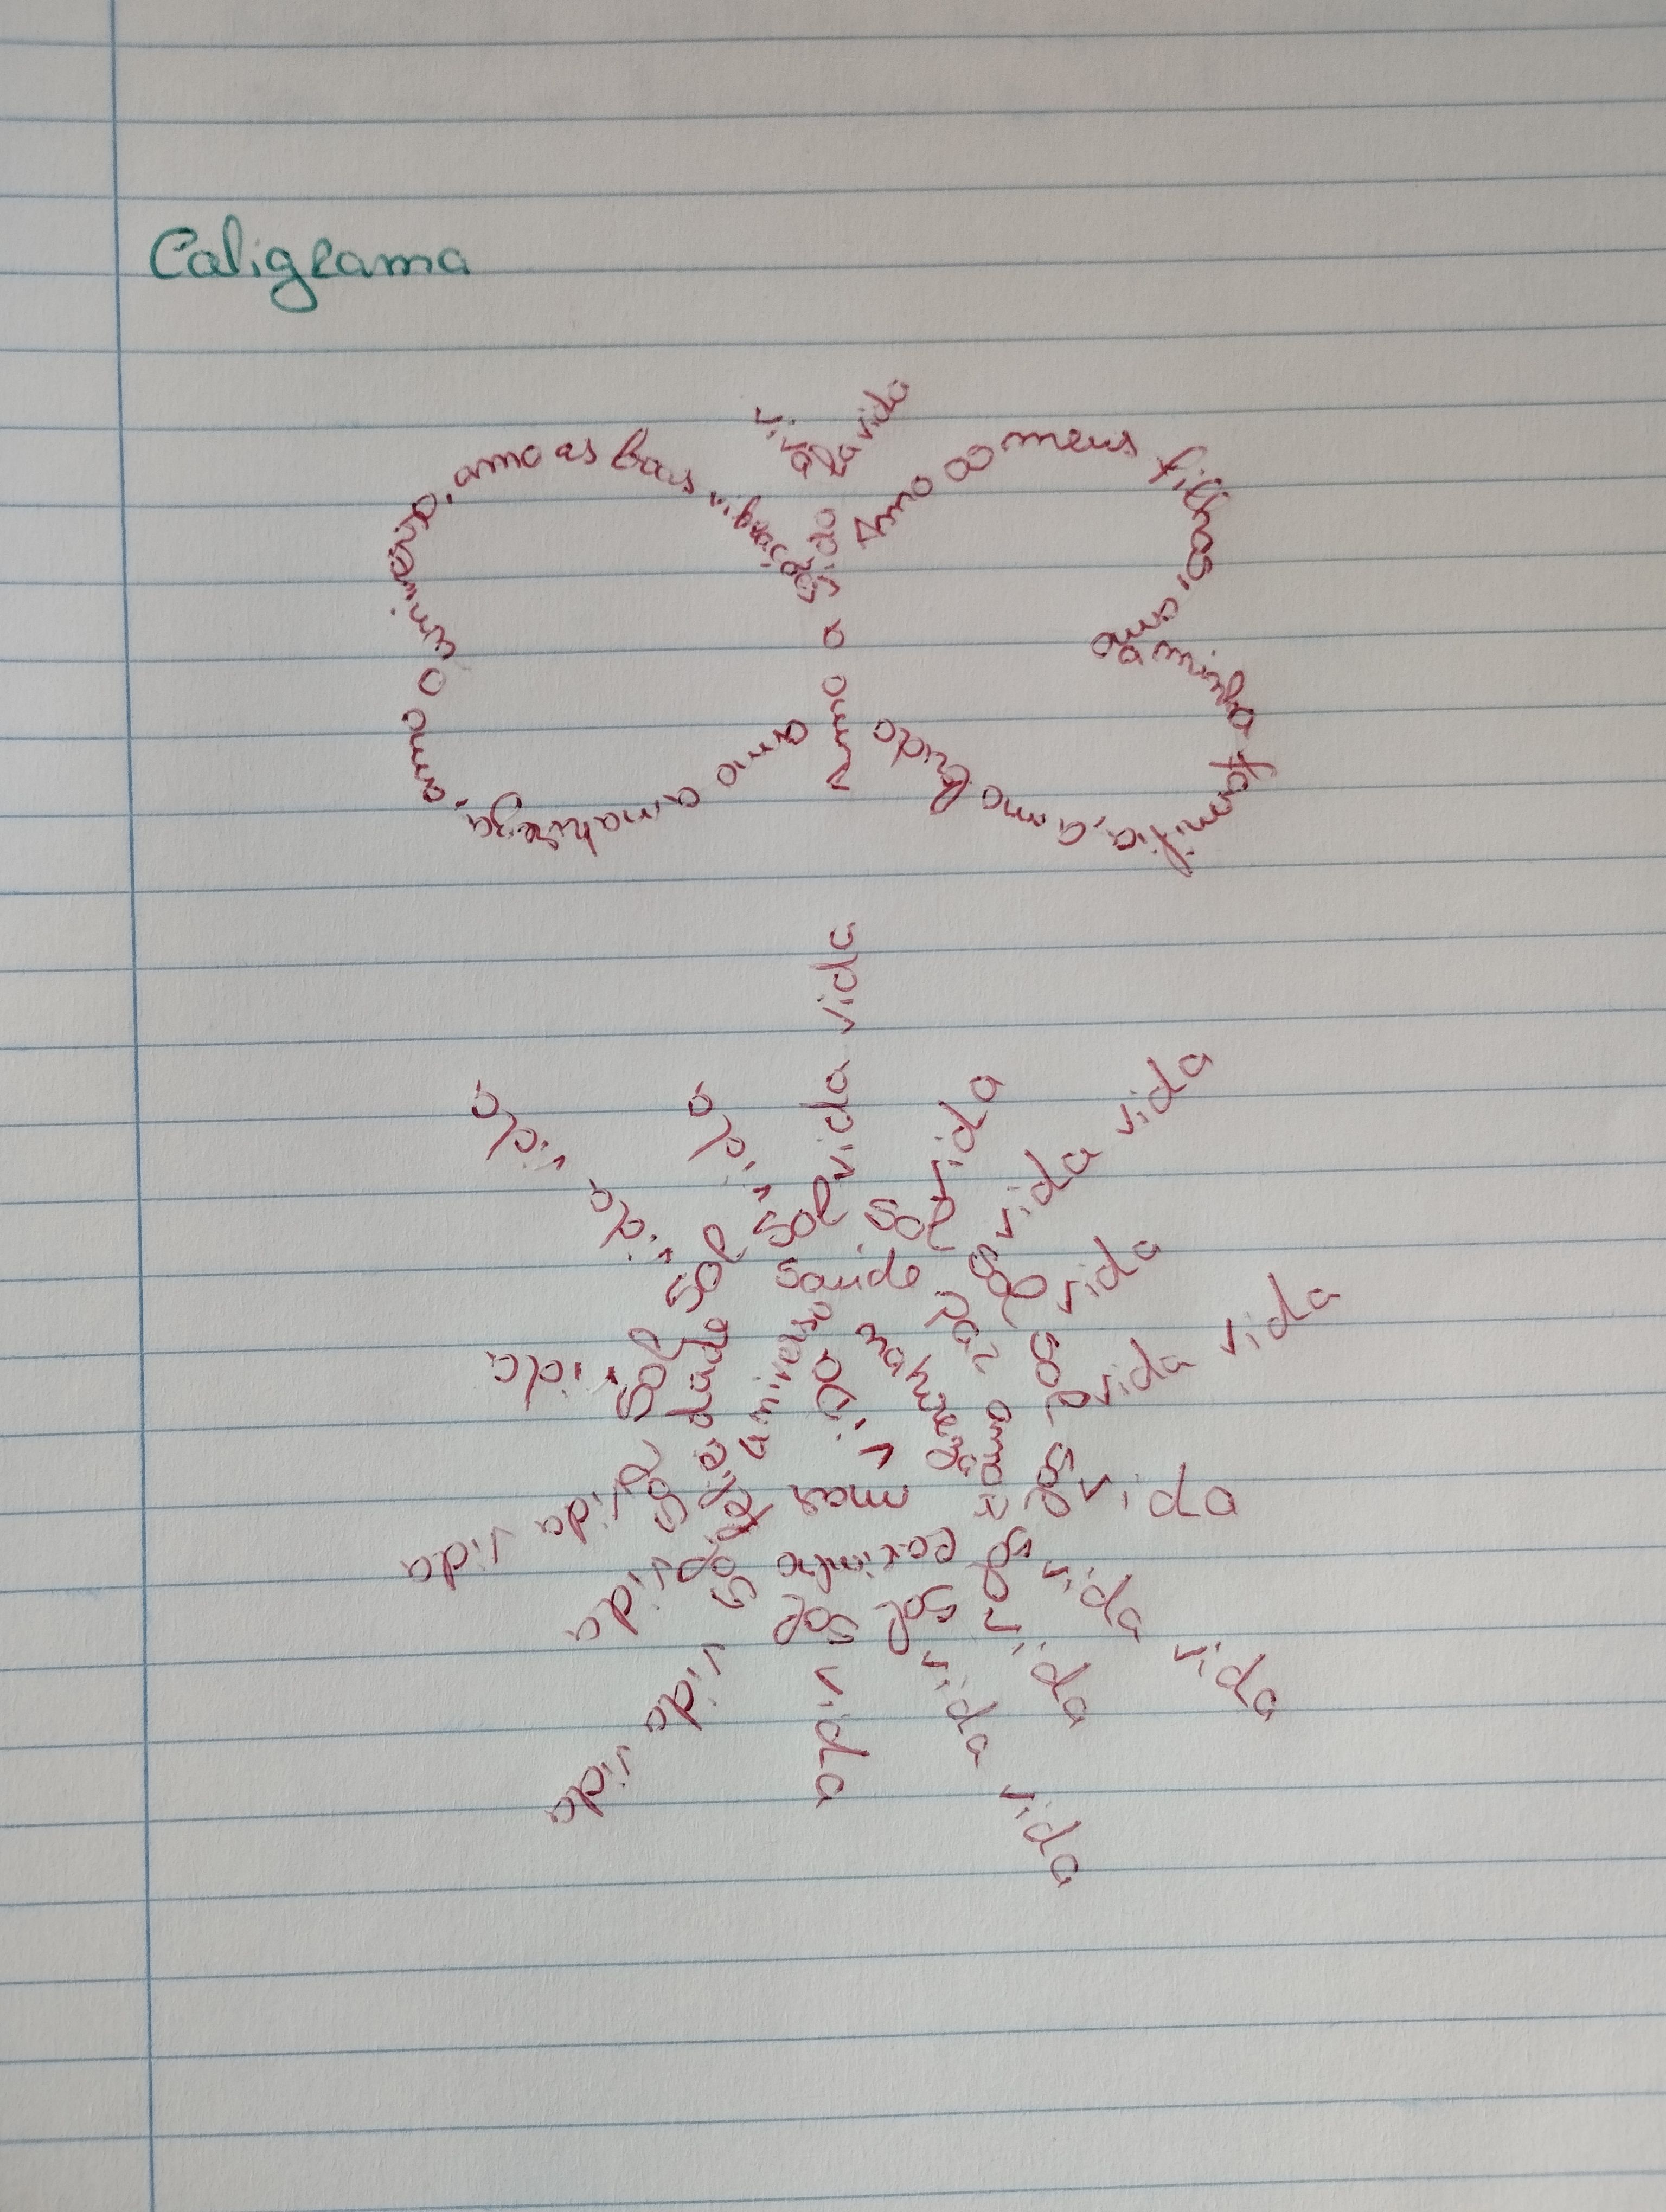 Caligrama
viva
la vida
Amo a vida
Amo os meus filhos, amo
a minha família, amo
amo a natureza, amo o universo, amo as boas
vida vida
vida vida
vida
vida
vida vida
vida
vida vida
vida
vida vida
vida
vida vida
vida
vida vida
vida
vida vida
vida
sol sol sol sol sol sol sol sol sol sol sol sol
saúde
paz
amor
carinho
universo
vida
mar